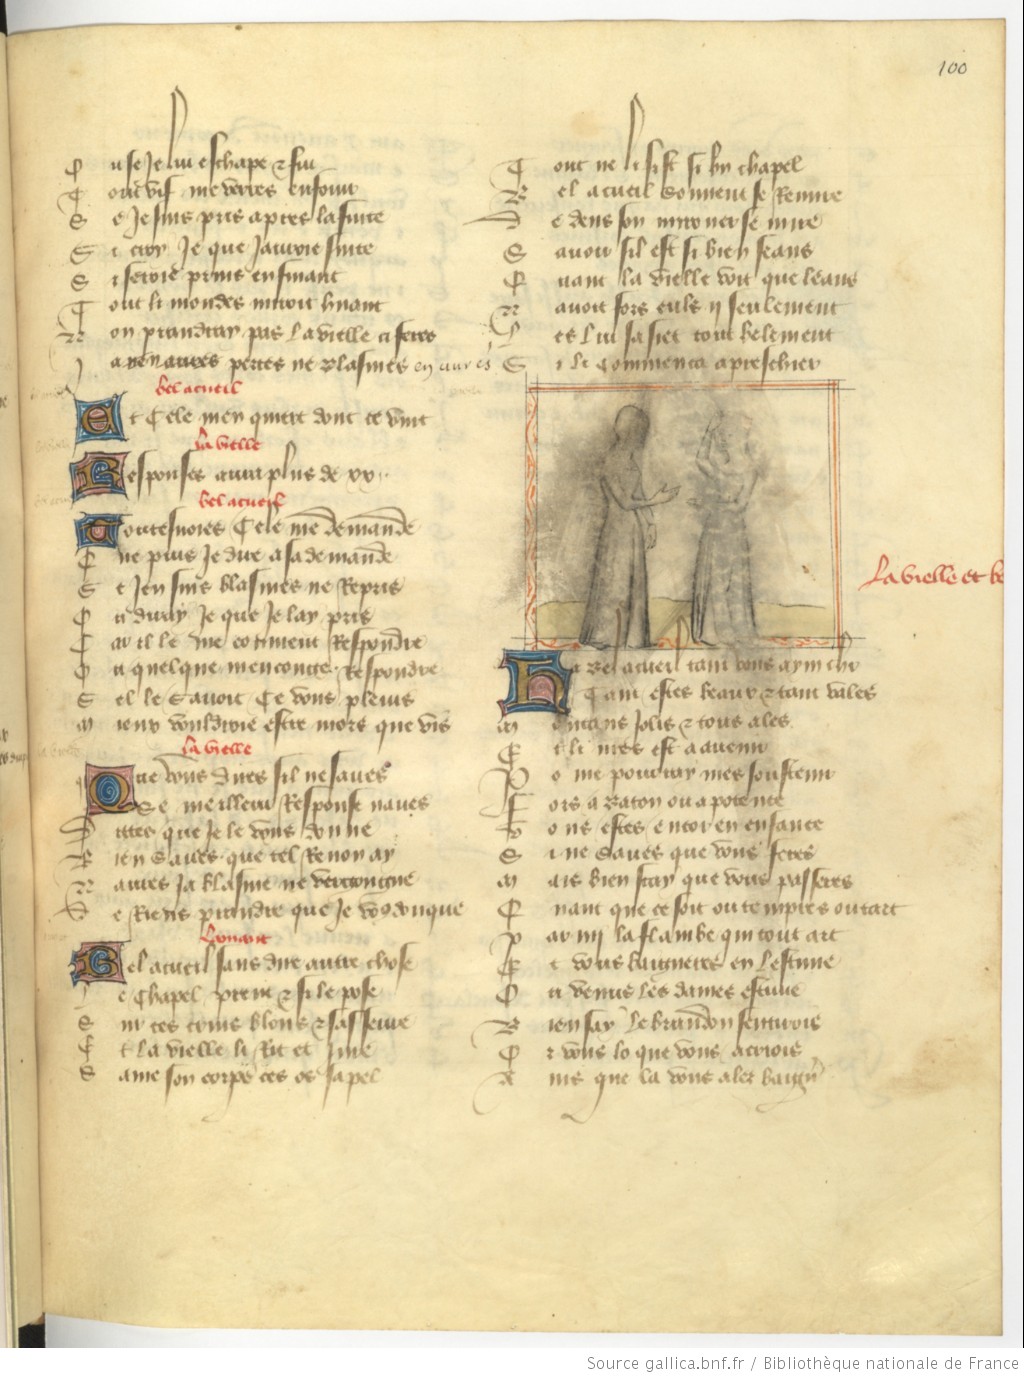 100
Q ue se Je lui eschape & fui
T out vif me verres enfouir
S e Je suis pris apres la fuite
S i croy Je que Jauroie suite
S i seroie prins en fuiant
T out li mondes miroit huiant
N on prandray pas la vielle ci feres
J a nen aures pertes ne blasmes en aures
bel acueil
Et Cele men quiert dont ce vint
la vielle
Responses aura plus de xx
bel acueil
Toutesvoies Cele me demande
Q ue puis Je dire a sa demande
S e Jen suis blasmes ne Repris
O u diray Je que Je lay pris
C ar il le me convient Respondre
O u quelque menconge Respondre
S el le savoit Ce vous plevis
M ieux vouldroie estre mors que vis
la vielle
Que vous dires sil ne saves
Se meilleur Response naves
D ittes que Je le vous donne
B ien saves que tel Renon ay
N aures Ja blasme ne vercongne
D e Riens prandre que Je vo9 donque
Lamant
Bel acueil sans dire autre chose
L e Chapel prent & si le pose
S ur ces crins blons & sasseure
E t la vielle li Rit et Jure
S ame son corps ces os sa pel
C onc ne li sist si bn chapel
B el acueil souvent se Remire
D edens son mironer se mire
S avoir sil est si bien seans
Q uant la vielle voit que leans
N avoit fors euls ij seulement
L es lui sasiet tout belement
S i li Commenca a preschier
La vielle et be
Ha Bel acueil tant vous aym chr
Tant estes beaux & tant vales
M on tans Jolis & tous ales
E t li vres est a avenir
P o me pourray mes soustenir
F ors a Baton ou a potence
V o9 estes encor en enfance
S i ne Saves que vous feres
M ais bien scay que vous passeres
Q uant que ce soit ou tempres ou tart
P ar mi la flambe qui tout art
E t vous baigneres en lestuve
O u venus les dames estuve
B ien say le brandon sentirois
O r vous lo que vous atiriois
A ins que la vous ales baign
Source gallica.bnf.fr / Bibliothèque nationale de France